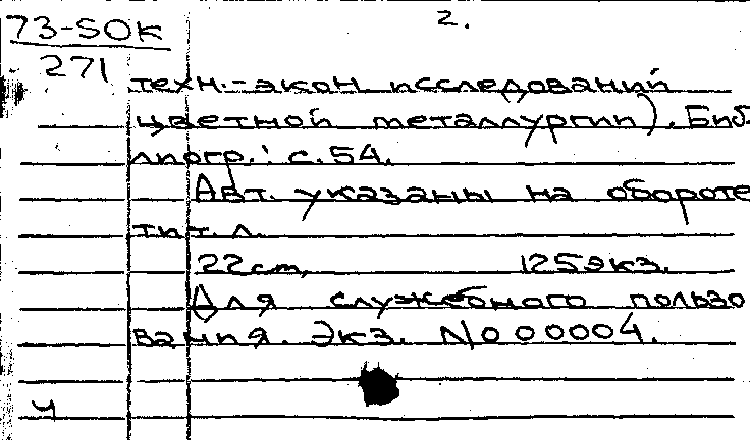 73-SOK
271
2.
техн.-экон исследований
цветной металлургии). Биб
лиогр.: с.54.
Авт. указаны на обороте
тит. л.
22 cm, 125экз.
Для служебного пользо
вания. Экз. No 00004.
4